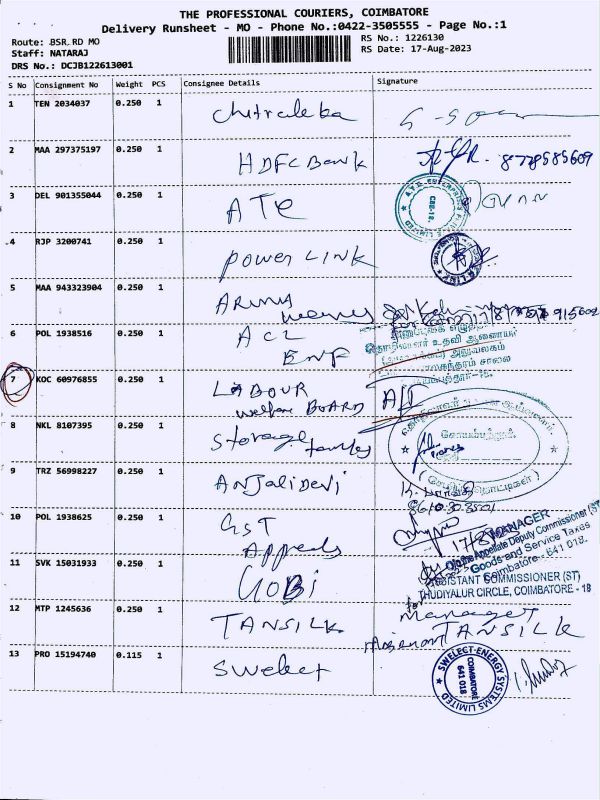 THE PROFESSIONAL COURIERS, COIMBATORE
Delivery Runsheet - MO - Phone No.:0422-3505555 - Page No.:1
Route: BSR,RD MO
RS No.: 1226130
Staff: NATARAJ
RS Date: 17-Aug-2023
DRS No.: DCJB122613001
S No Consignment No Weight PCS Consignee Details Signature
1 TEN 2034037 0.250 1 Chitraleka
2 MAA 297375197 0.250 1 HDFC Bank 8778585609
3 DEL 901355044 0.250 1 ATE
4 RJP 3200741 0.250 1 POWER LINK
5 MAA 943323904 0.250 1 ARUNA
6 POL 1938516 0.250 1 ACL
ENP
தொழிலாளர் உதவி ஆணையர்
அலுவலகம்
சாலை
7 KOC 60976855 0.250 1 LABOUR
Welfare BOARD
8 NKL 8107395 0.250 1 Storage
கோயம்புத்தூர்
9 TRZ 56998227 0.250 1 ANJALIDEVI
10 POL 1938625 0.250 1 GST
Appeals
MANAGER
O/o the Appellate Deputy Commissioner (ST)
Goods and Service Taxes
Coimbatore - 641 018.
11 SVK 15031933 0.250 1 GOBI
ASSISTANT COMMISSIONER (ST)
THUDIYALUR CIRCLE, COIMBATORE - 18
12 MTP 1245636 0.250 1 TANSILK
Manager
TANSILK
13 PRO 15194740 0.115 1 Swelect
SWELECT ENERGY SYSTEMS LIMITED
COIMBATORE
641 018